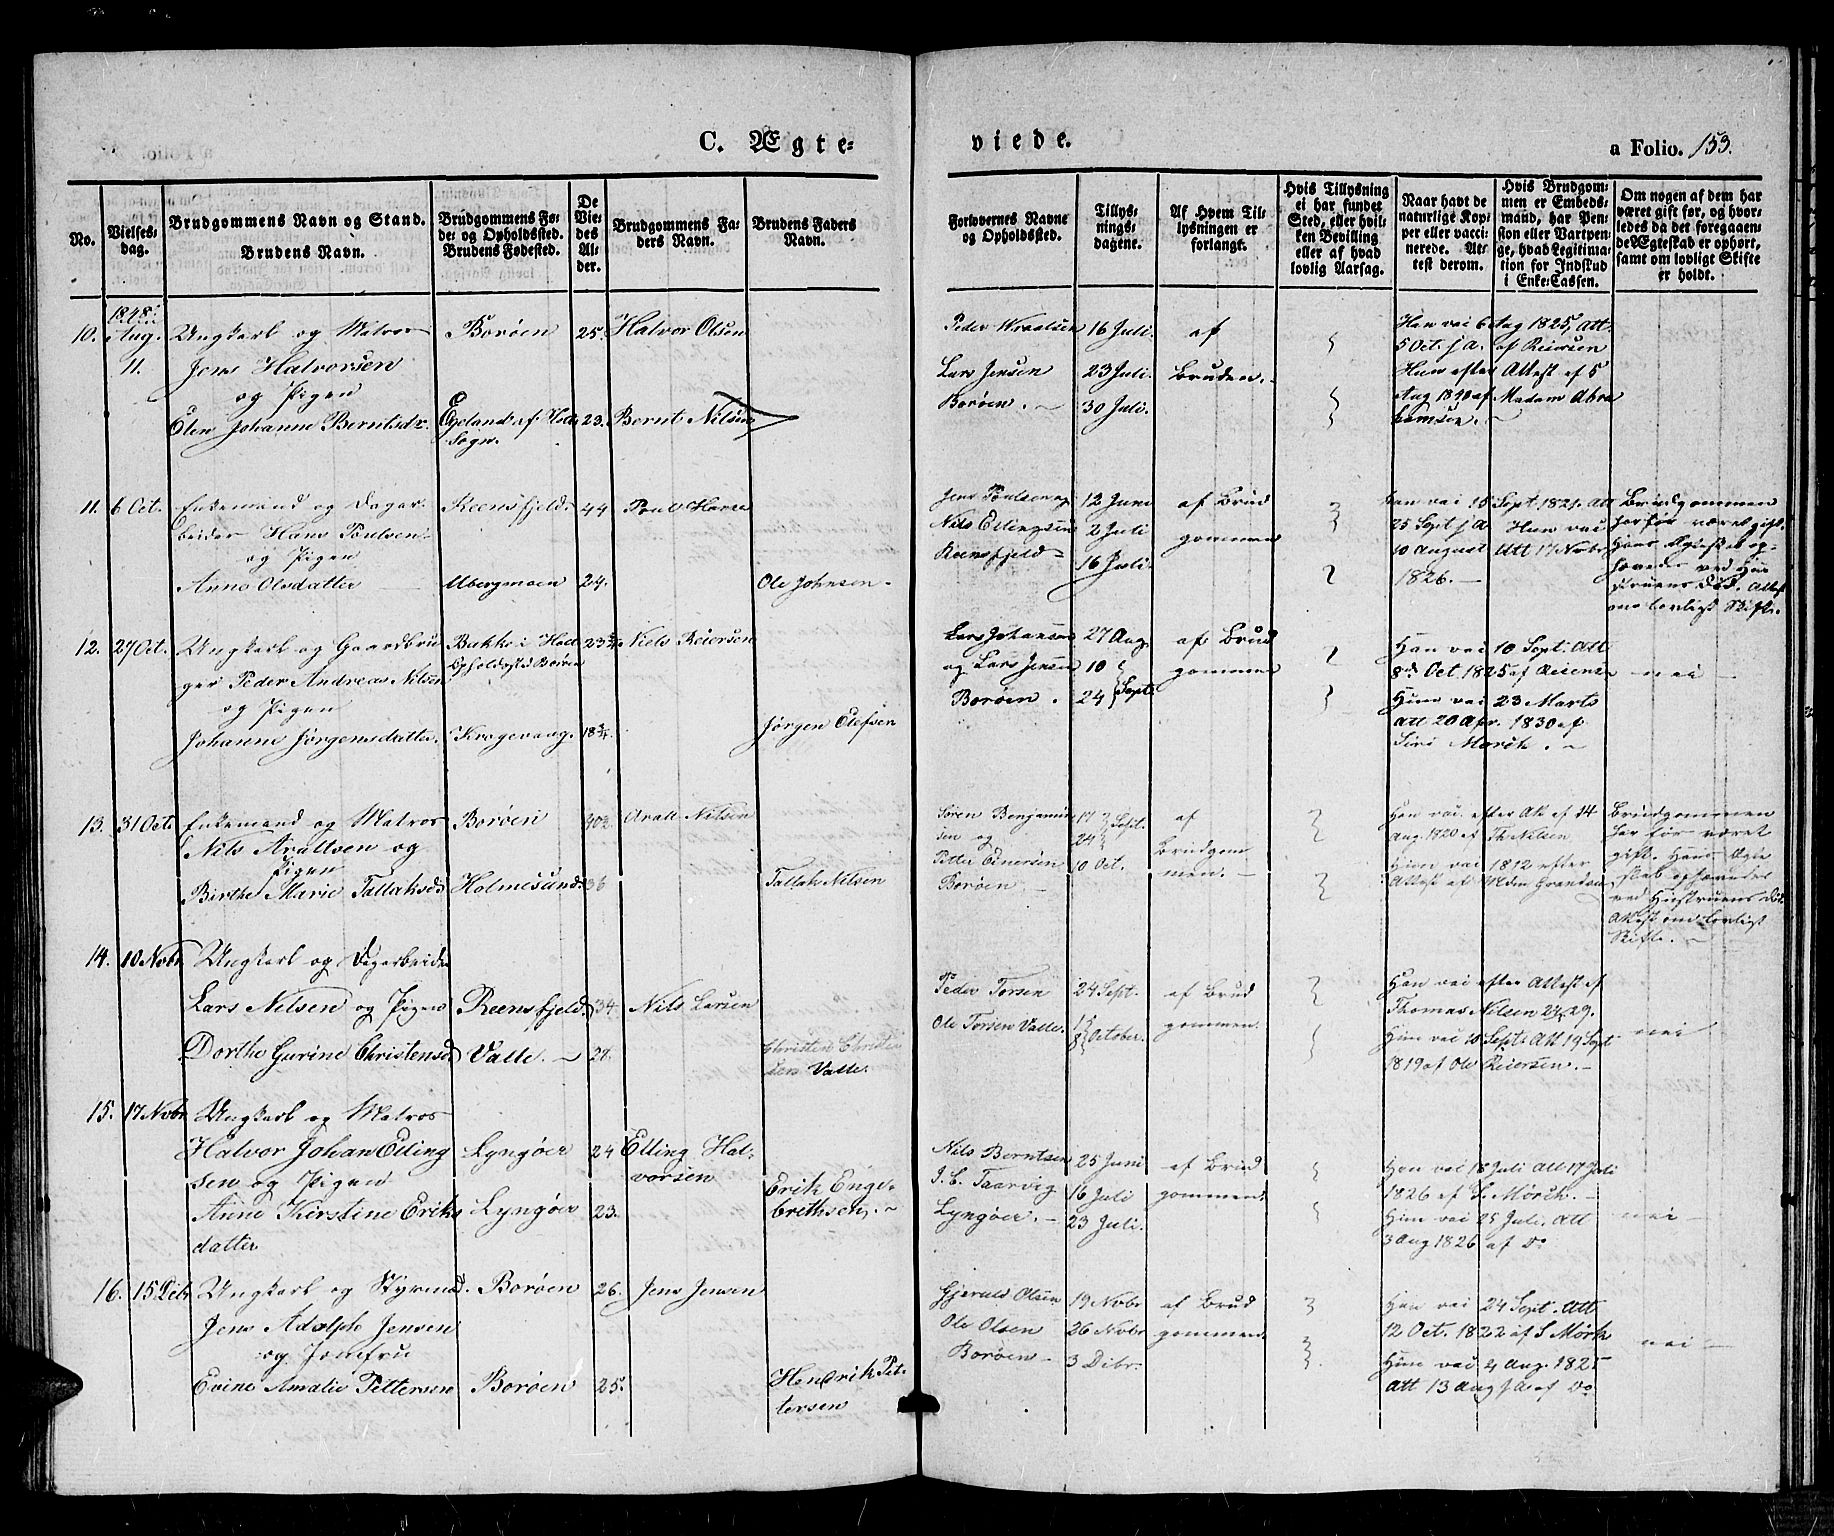 C. Ægte=
viede.
a Folio. 153.
No.
Vielses=
dag.
Brudgommens Navn og Stand.
Brudens Navn.
Brudgommens Fø=
de= og Opholdssted.
Brudens Fødested.
De
Vie=
des
Al=
der.
Brudgommens Fa=
ders Navn.
Brudens Faders
Navn.
Forlovernes Navne
og Opholdssted.
Tillys=
nings=
dagene.
Af Hvem Til=
lysningen er
forlangt.
Hvis Tillysning
ei har fundet
Sted, eller hvil=
ken Bevilling
eller af hvad
lovlig Aarsag.
Naar havt de
naturlige Kop=
per eller vacci=
nerede. At=
test derom.
Hvis Brudgom=
men er Embeds=
mand, har Pen=
sion eller Vartpen=
ge, hvad Legitima=
tion for Indskud
i Enke=Cassen.
Om nogen af dem har
været gift før, og hvor=
ledes da det foregaaen=
de Ægteskab er ophørt,
samt om lovligt Skifte
er holdt.
10.
1848
Aug.
11.
Ungkarl og Matros
Jens Halvorsen
og Pigen
Elen Johanne Berntsdr.
Borøen
Egeland af Holts
Sogn.
25.
23.
Halvor Olsen
Bernt Nilsen
Peder
Lars Jensen
Borøen.
16 Juli.
23 Juli.
30 Juli.
af
Bruden.
Han vac 6 Aug 1825, Att.
5 Oct. s A. af Reiersen
Hun efter Attest af 5
Aug 1840 af Madam Abra
hamsen.
11.
6 Oct.
Enkemand og Dagar=
beider Hans Poulsen
og Pigen
Anne Olsdatter
Reensfjeld
Ubergsmoen
44
24.
Poul Hansen
Ole Johnsen
Jens Poulsen og
Nils Ellingsen
Reensfjeld
12 Juni
2 Juli
16 Juli.
af Brud
gommen
Han vac 15 Sept 1821. Att
25 Sept s A. Hun vac
10 August Att 17 Novbr
1826.
Brudgommen
har før været gift.
Hans Ægteskab op=
hævedes ved Hu
struens Død. Attest
om lovligt Skifte.
12.
27 Oct.
Ungkarl og Gaardbru
ger Peder Andreas Nilsen
og Pigen
Johanne Jørgensdatter.
Bakke i Holt
Opholdssted Borøen
Kragevaag.
23 3/4
18 3/4.
Niels Reiersen
Jørgen Olefsen
Lars Johansen
og Lars Jensen
Borøen.
27 Aug
10
24 Sept.
af Brud
gommen
Han vac 10 Sept. Att
8de Oct. 1825 af Reiersen
Hun vac 23 Marts
Att 20 Apr. 1830 af
Siri Mørch.
nei
13.
31 Oct.
Enkemand og Matros
Nils Araltsen og
Pigen
Birthe Marie Tallaksd.
Borøen
Holmesund.
36
Aralt Nilsen
Tallak Nilsen
Søren Benjamin
sen og
Petter Einersen
Borøen
17
24 Sept.
10 Oct.
af
Brudgom
men.
Han vac. efter Att. af 14
Aug. 1820 af Th. Nilsen
Hun vac 1812 efter
Attest af Mdm
Brudgommen
har før været
gift. Hans Ægte
skab ophævedes
ved Hustruens Død.
Attest om lovligt
Skifte.
14.
10 Novbr
Ungkarl og Dagarbeider
Lars Nilsen og Pigen
Dorthe Gurine Christensd
Reensfjeld.
Valle.
34.
Nils Larsen
Christen Christen
sen Valle.
Peder Torsen
Ole Torsen Valle.
24 Sept.
1
8 October.
af Brud
gommen.
Han vac efter Attest af
Thomas Nilsen
Hun vac 10 Septr Att 19 Sept
1819 af Ole Reiersen.
nei
15.
17 Novbr
Ungkarl og Matros
Halvor Johan Elling
sen og Pigen
Anne Kirstine Eriks
datter
Lyngøer
Lyngøer
24
23.
Elling Hal=
vorsen
Erik Enge=
brethsen.
Nils Berntsen
J. C. Taarvig
Lyngøer.
25 Juni
16 Juli
23 Juli.
af Brud
gommen.
Han vac 18 Juli Att 17 Juli
1826 af S. Mørch.
Hun vac 25 Juli. Att
3 Aug 1826 af Do
nei
16.
15 Debr
Ungkarl og Styrmd.
Jens Adolph Jensen
og Jomfru
Evine Amalie Pettersen
Borøen
Borøen
26.
25.
Jens Jensen
Hendrik Pet=
tersen
Gjeruld Olsen
Ole Olsen
Borøen
19 Novbr
26 Novbr
3 Dcbr.
af Brud
gommen
Han vac 24 Sept. Att
12 Oct. 1822 af S Mørch
Hun vac 4 Aug. 1825
Att 13 Aug s A. af Do
nei